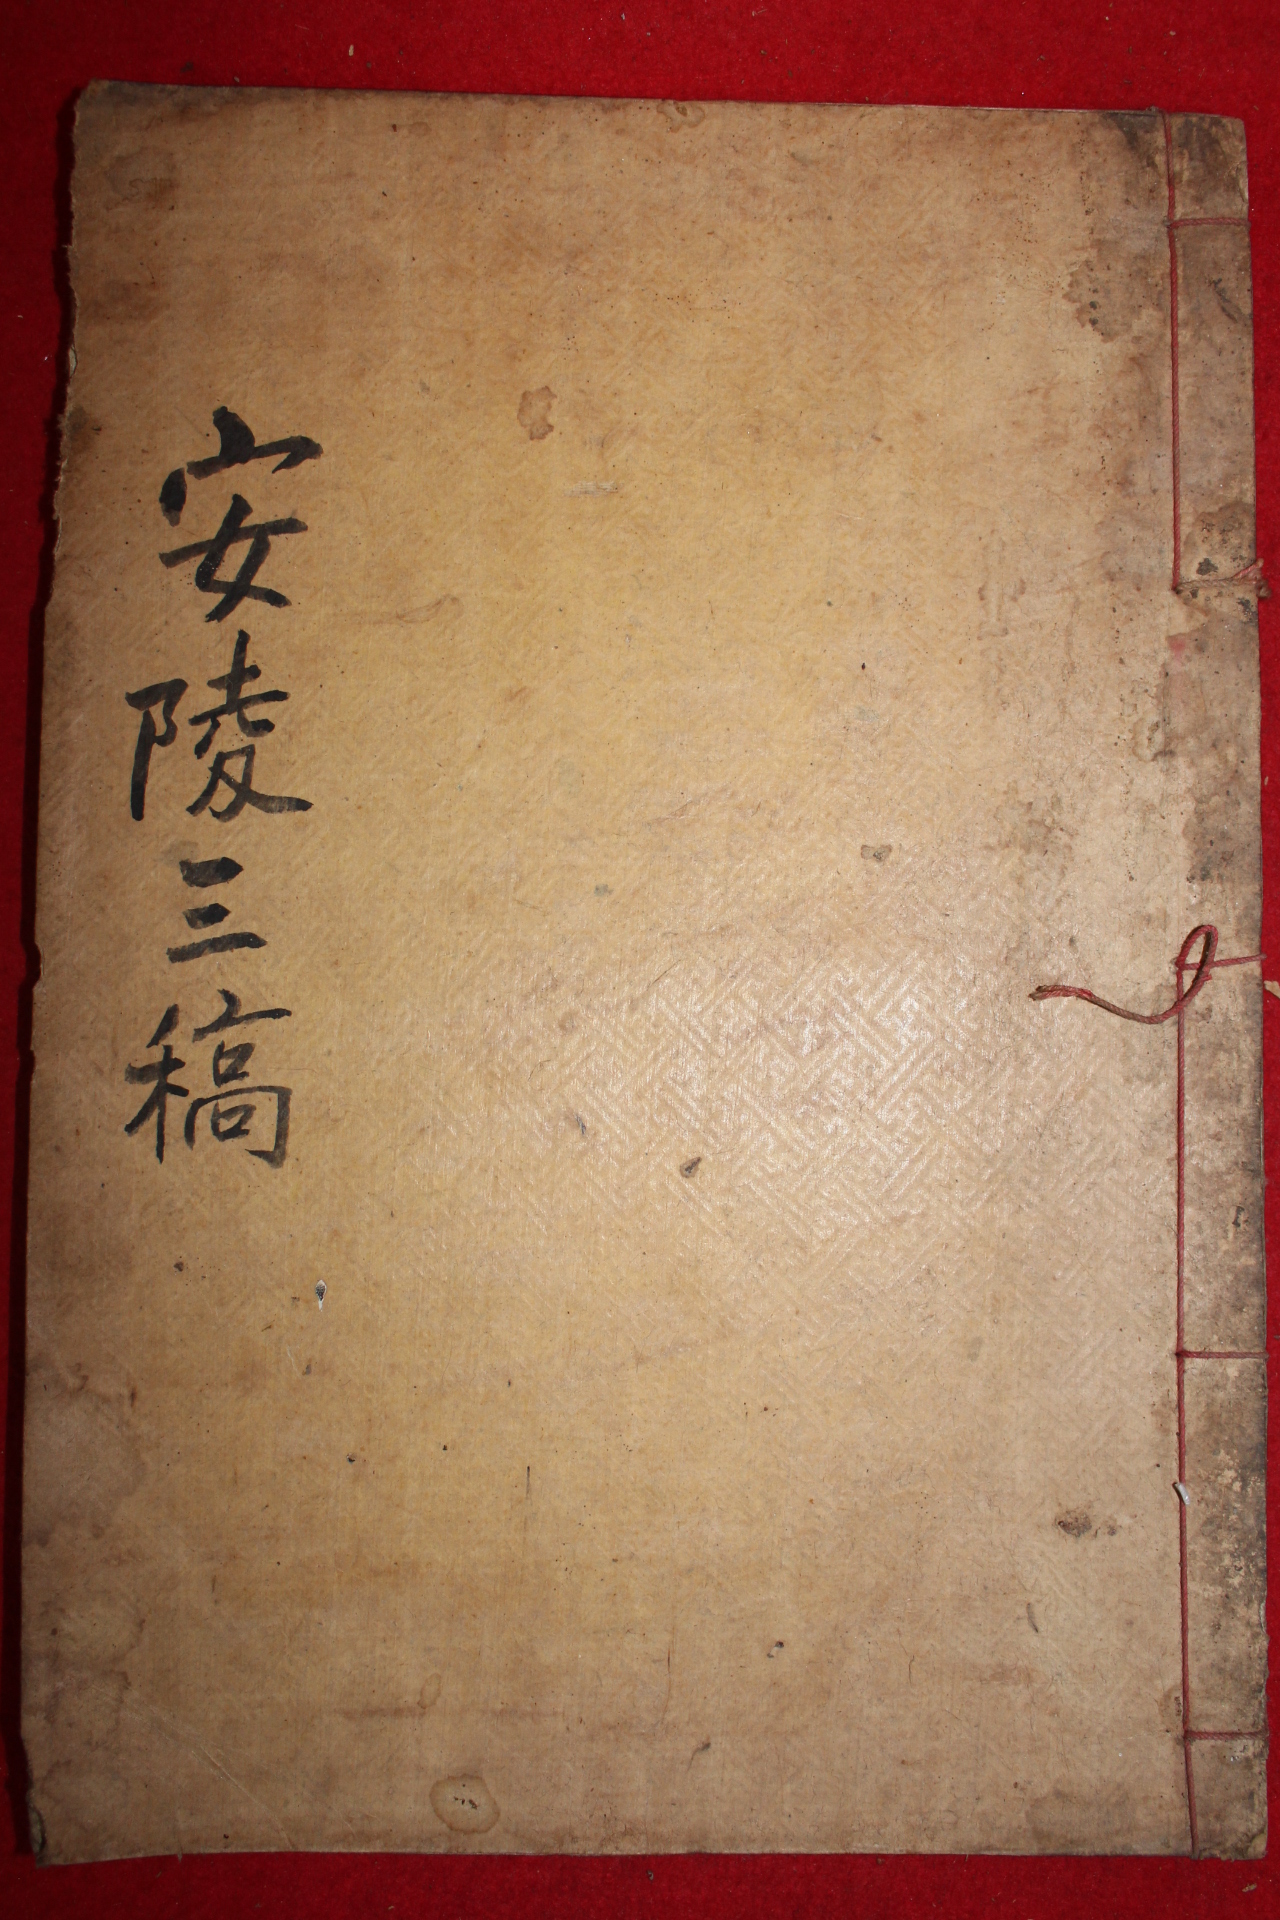 安陵三稿